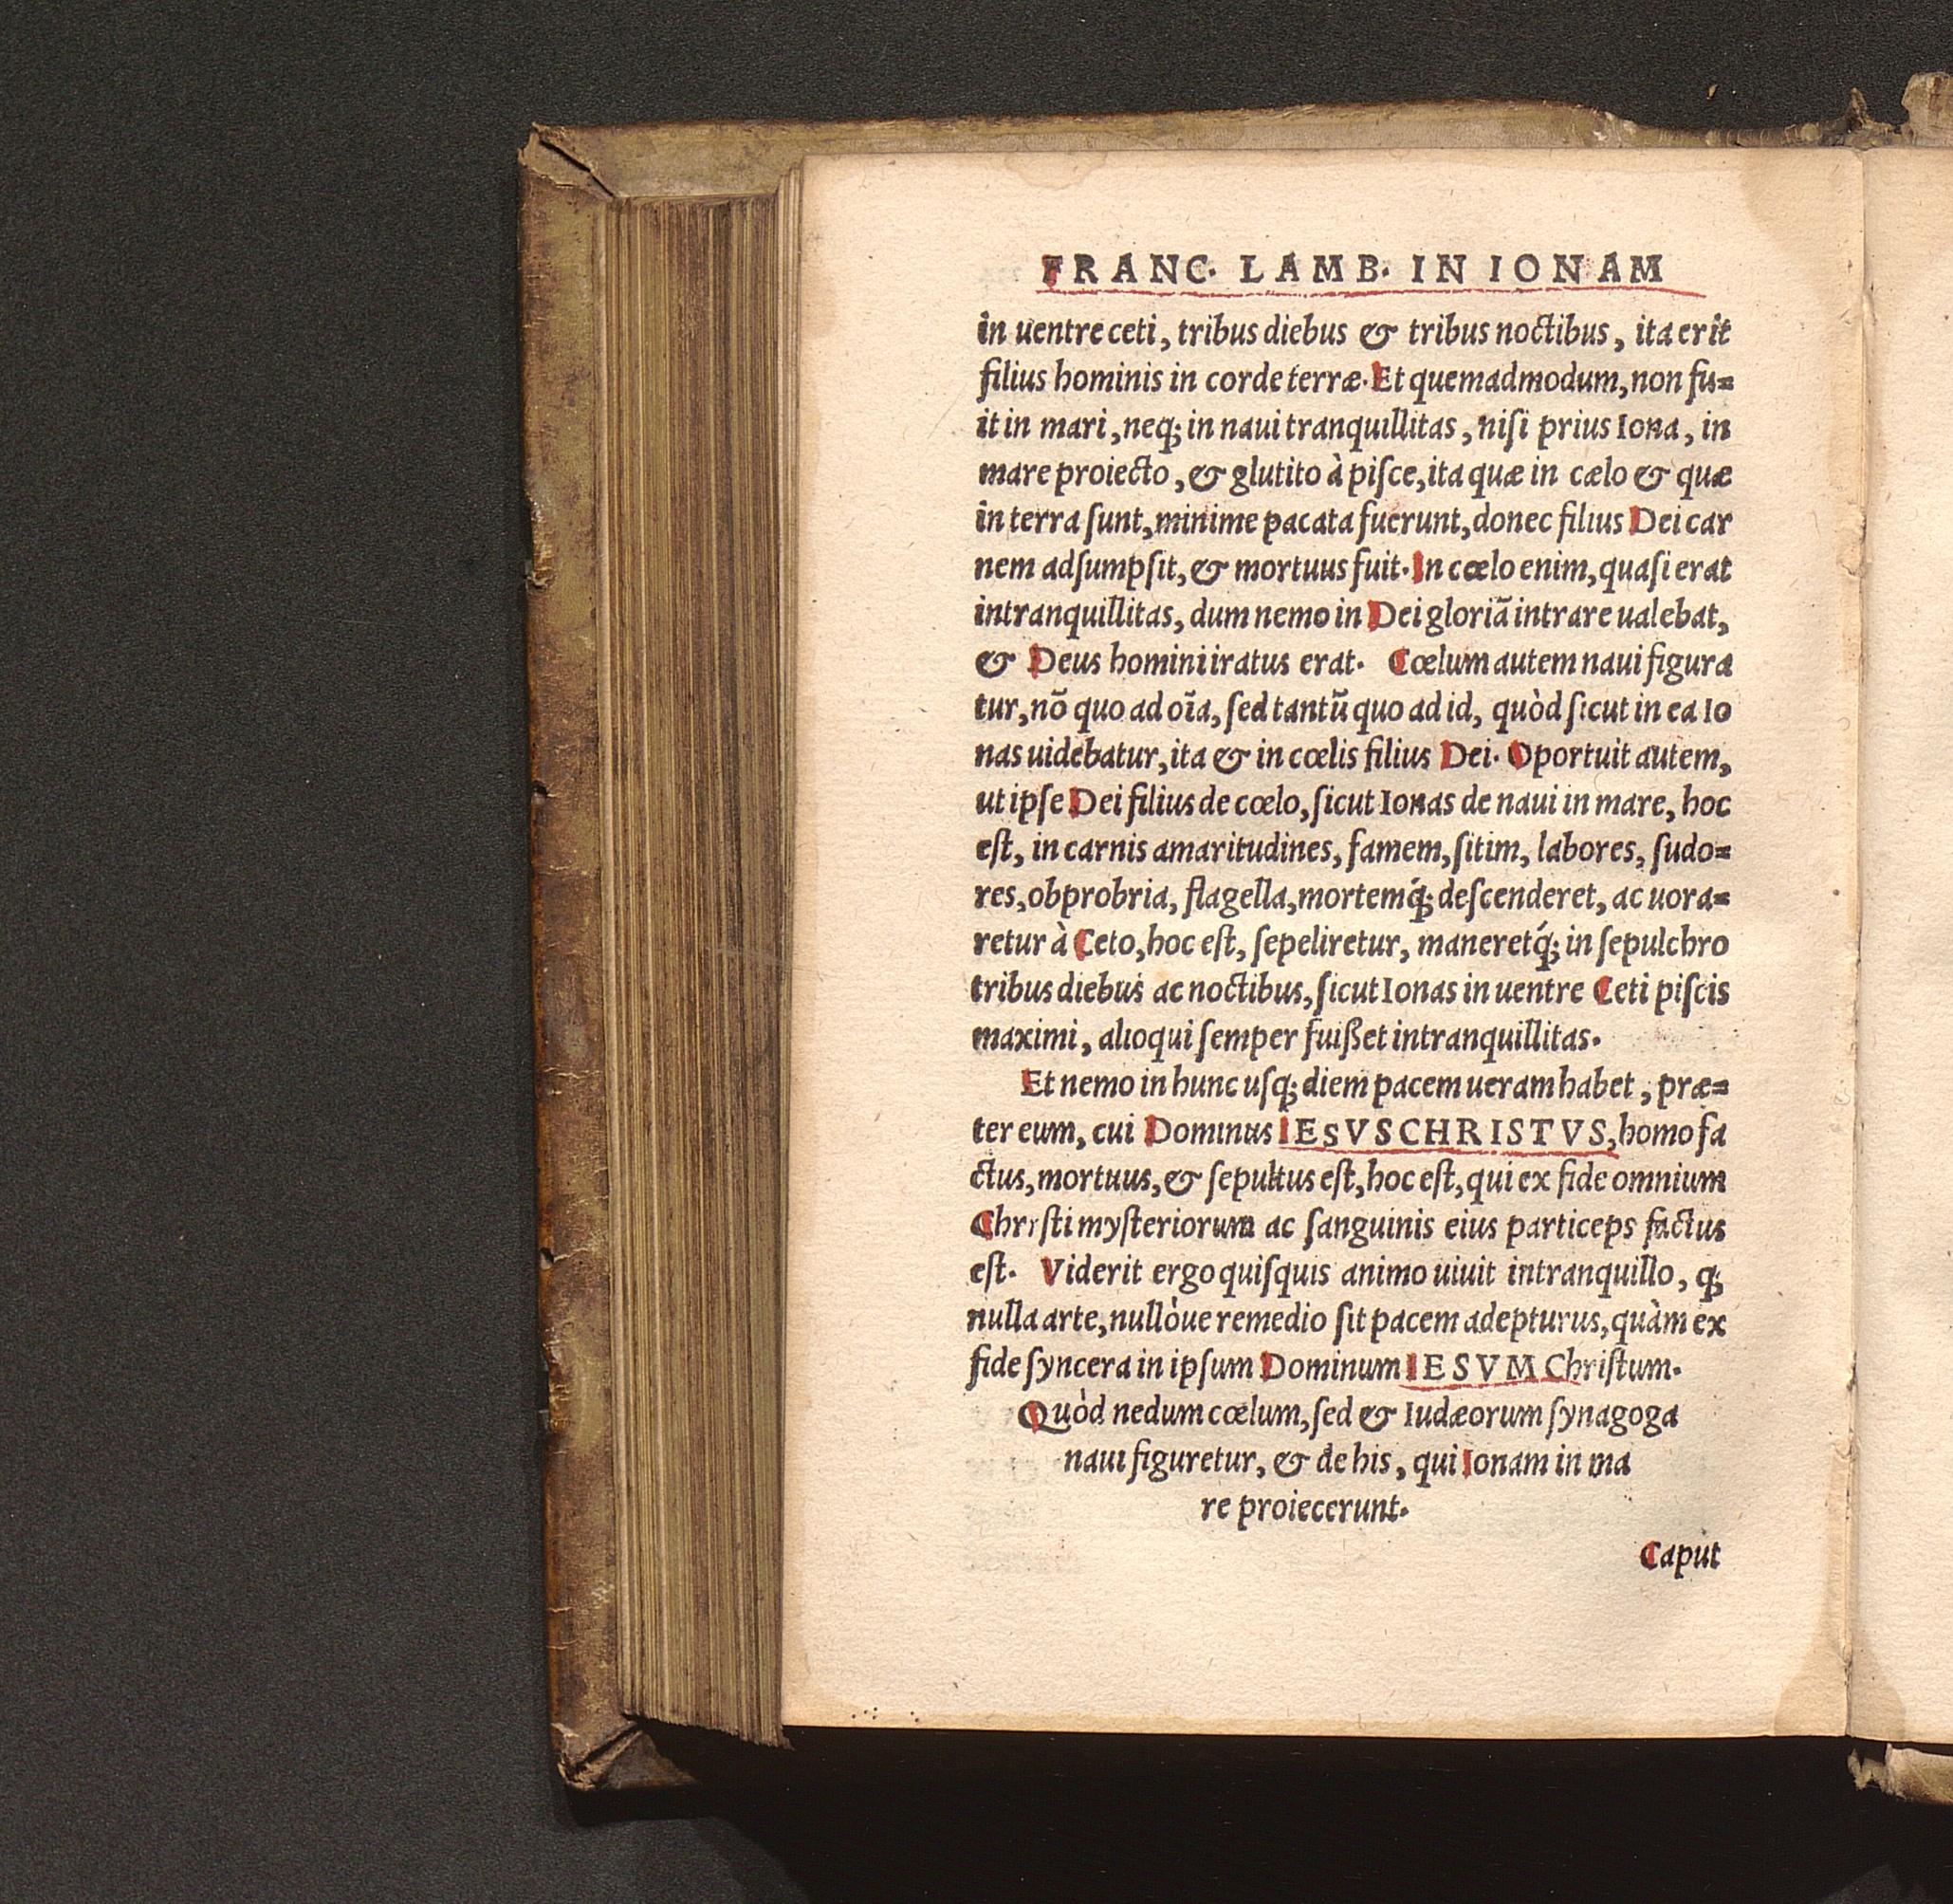 FRANC. LAMB. IN IONAM
in uentre ceti, tribus diebus & tribus noctibus, ita erit
filius hominis in corde terræ. Et quemadmodum, non fu=
it in mari, neq; in naui tranquillitas, niſi prius Iona, in
mare proiecto, & glutito à piſce, ita quæ in cælo & quæ
in terra ſunt, minime pacata fuerunt, donec filius Dei car
nem adſumpſit, & mortuus fuit. In cœlo enim, quaſi erat
intranquillitas, dum nemo in Dei gloriã intrare ualebat,
& Deus homini iratus erat. Cœlum autem naui figura
tur, nõ quo ad oĩa, ſed tantũ quo ad id, quòd ſicut in ea Io
nas uidebatur, ita & in cœlis filius Dei. Oportuit autem,
ut ipſe Dei filius de cœlo, ſicut Ionas de naui in mare, hoc
eſt, in carnis amaritudines, famem, ſitim, labores, ſudo=
res, obprobria, flagella, mortemq́; deſcenderet, ac uora=
retur à Ceto, hoc eſt, ſepeliretur, maneretq́; in ſepulchro
tribus diebus ac noctibus, ſicut Ionas in uentre Ceti piſcis
maximi, alioqui ſemper fuiſſet intranquillitas.
Et nemo in hunc uſq; diem pacem ueram habet, præ=
ter eum, cui Dominus IESVS CHRISTVS, homo fa
ctus, mortuus, & ſepultus eſt, hoc eſt, qui ex fide omnium
Chriſti myſteriorum ac ſanguinis eius particeps factus
eſt. Viderit ergo quiſquis animo uiuit intranquillo, q;
nulla arte, nullòue remedio ſit pacem adepturus, quàm ex
fide ſyncera in ipſum Dominum IESVM Chriſtum.
Quòd nedum cœlum, ſed & Iudæorum ſynagoga
naui figuretur, & de his, qui Ionam in ma
re proiecerunt.
Caput